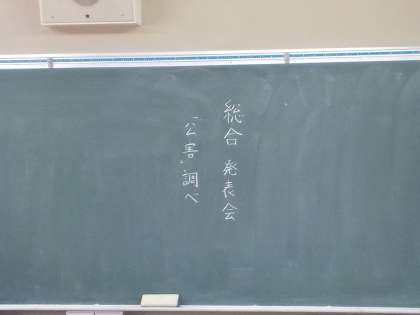 総合 発表会
「公害」調べ